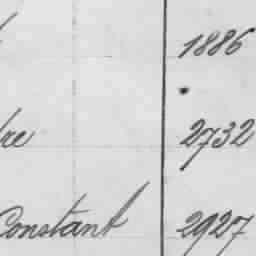 1886
re 2732
Constant 2927